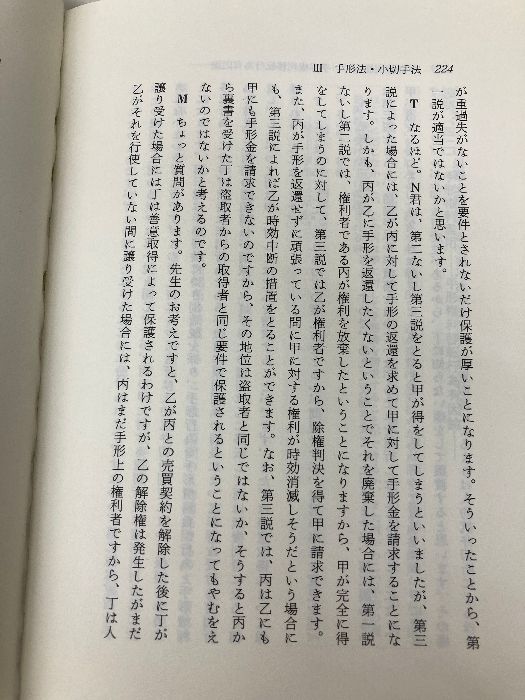 Ⅲ 手形法・小切手法 224
が重過失がないことを要件とされないだけ保護が厚いことになります。そういったことから、第
一説が適当ではないかと思います。
T なるほど。N君は、第二ないし第三説をとると甲が得をしてしまうといいましたが、第三
説によった場合には、乙が丙に対して手形の返還を求めて甲に対して手形金を請求することにな
ります。しかも、丙が乙に手形を返還したくないということでそれを廃棄した場合には、第一説
ないし第二説では、権利者である丙が権利を放棄したということになりますから、甲が完全に得
をしてしまうのに対して、第三説では乙が権利者ですから、除権判決を得て甲に請求できます。
また、丙が手形を返還せずに頑張っている間に甲に対する権利が時効消滅しそうだという場合に
も、第三説によれば乙が時効中断の措置をとることができます。なお、第三説では、丙は乙にも
甲にも手形金を請求できないのですから、その地位は盗取者と同じではないか、そうすると丙か
ら裏書を受けた丁は盗取者からの取得者と同じ要件で保護されるということになってもやむをえ
ないのではないかと考えるのです。
M ちょっと質問があります。先生のお考えですと、乙が丙との売買契約を解除した後に丁が
譲り受けた場合には丁は善意取得によって保護されるわけですが、乙の解除権は発生したがまだ
乙がそれを行使していない間に譲り受けた場合には、丙はまだ手形上の権利者ですから、丁は人